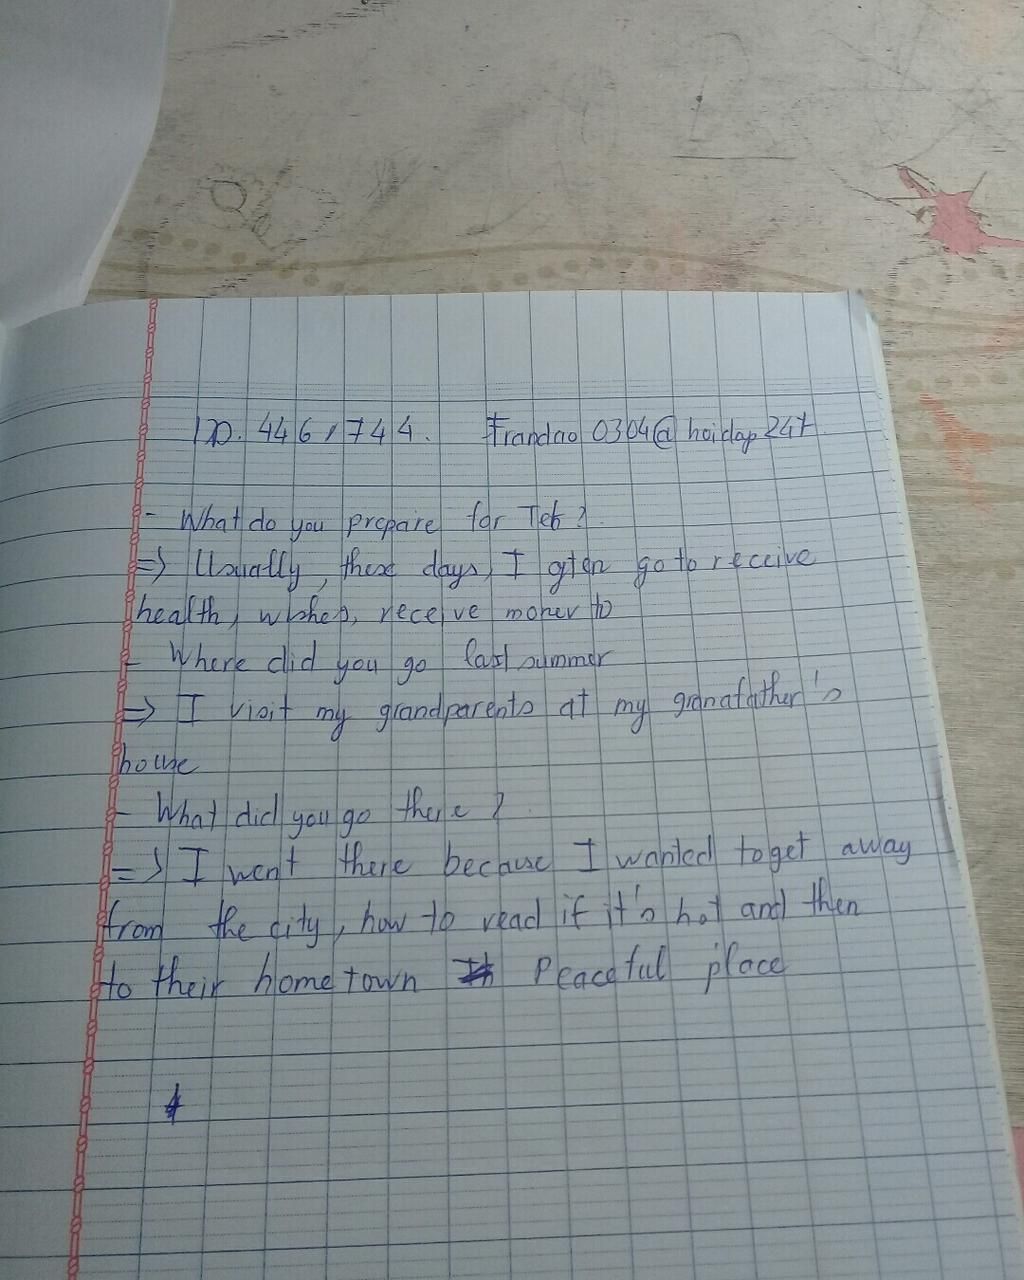 ID. 446,744. Trandao 0304@ hoidap 247
- What do you prepare for Tet ?
=> Usually, these days, I often go to receive
health, wishes, receive money to
- Where did you go last summer
=> I visit my grandparents at my grandfather's
house
- What did you go there ?
=> I went there because I wanted to get away
from the city, how to read if it's hot and then
to their hometown Peaceful place